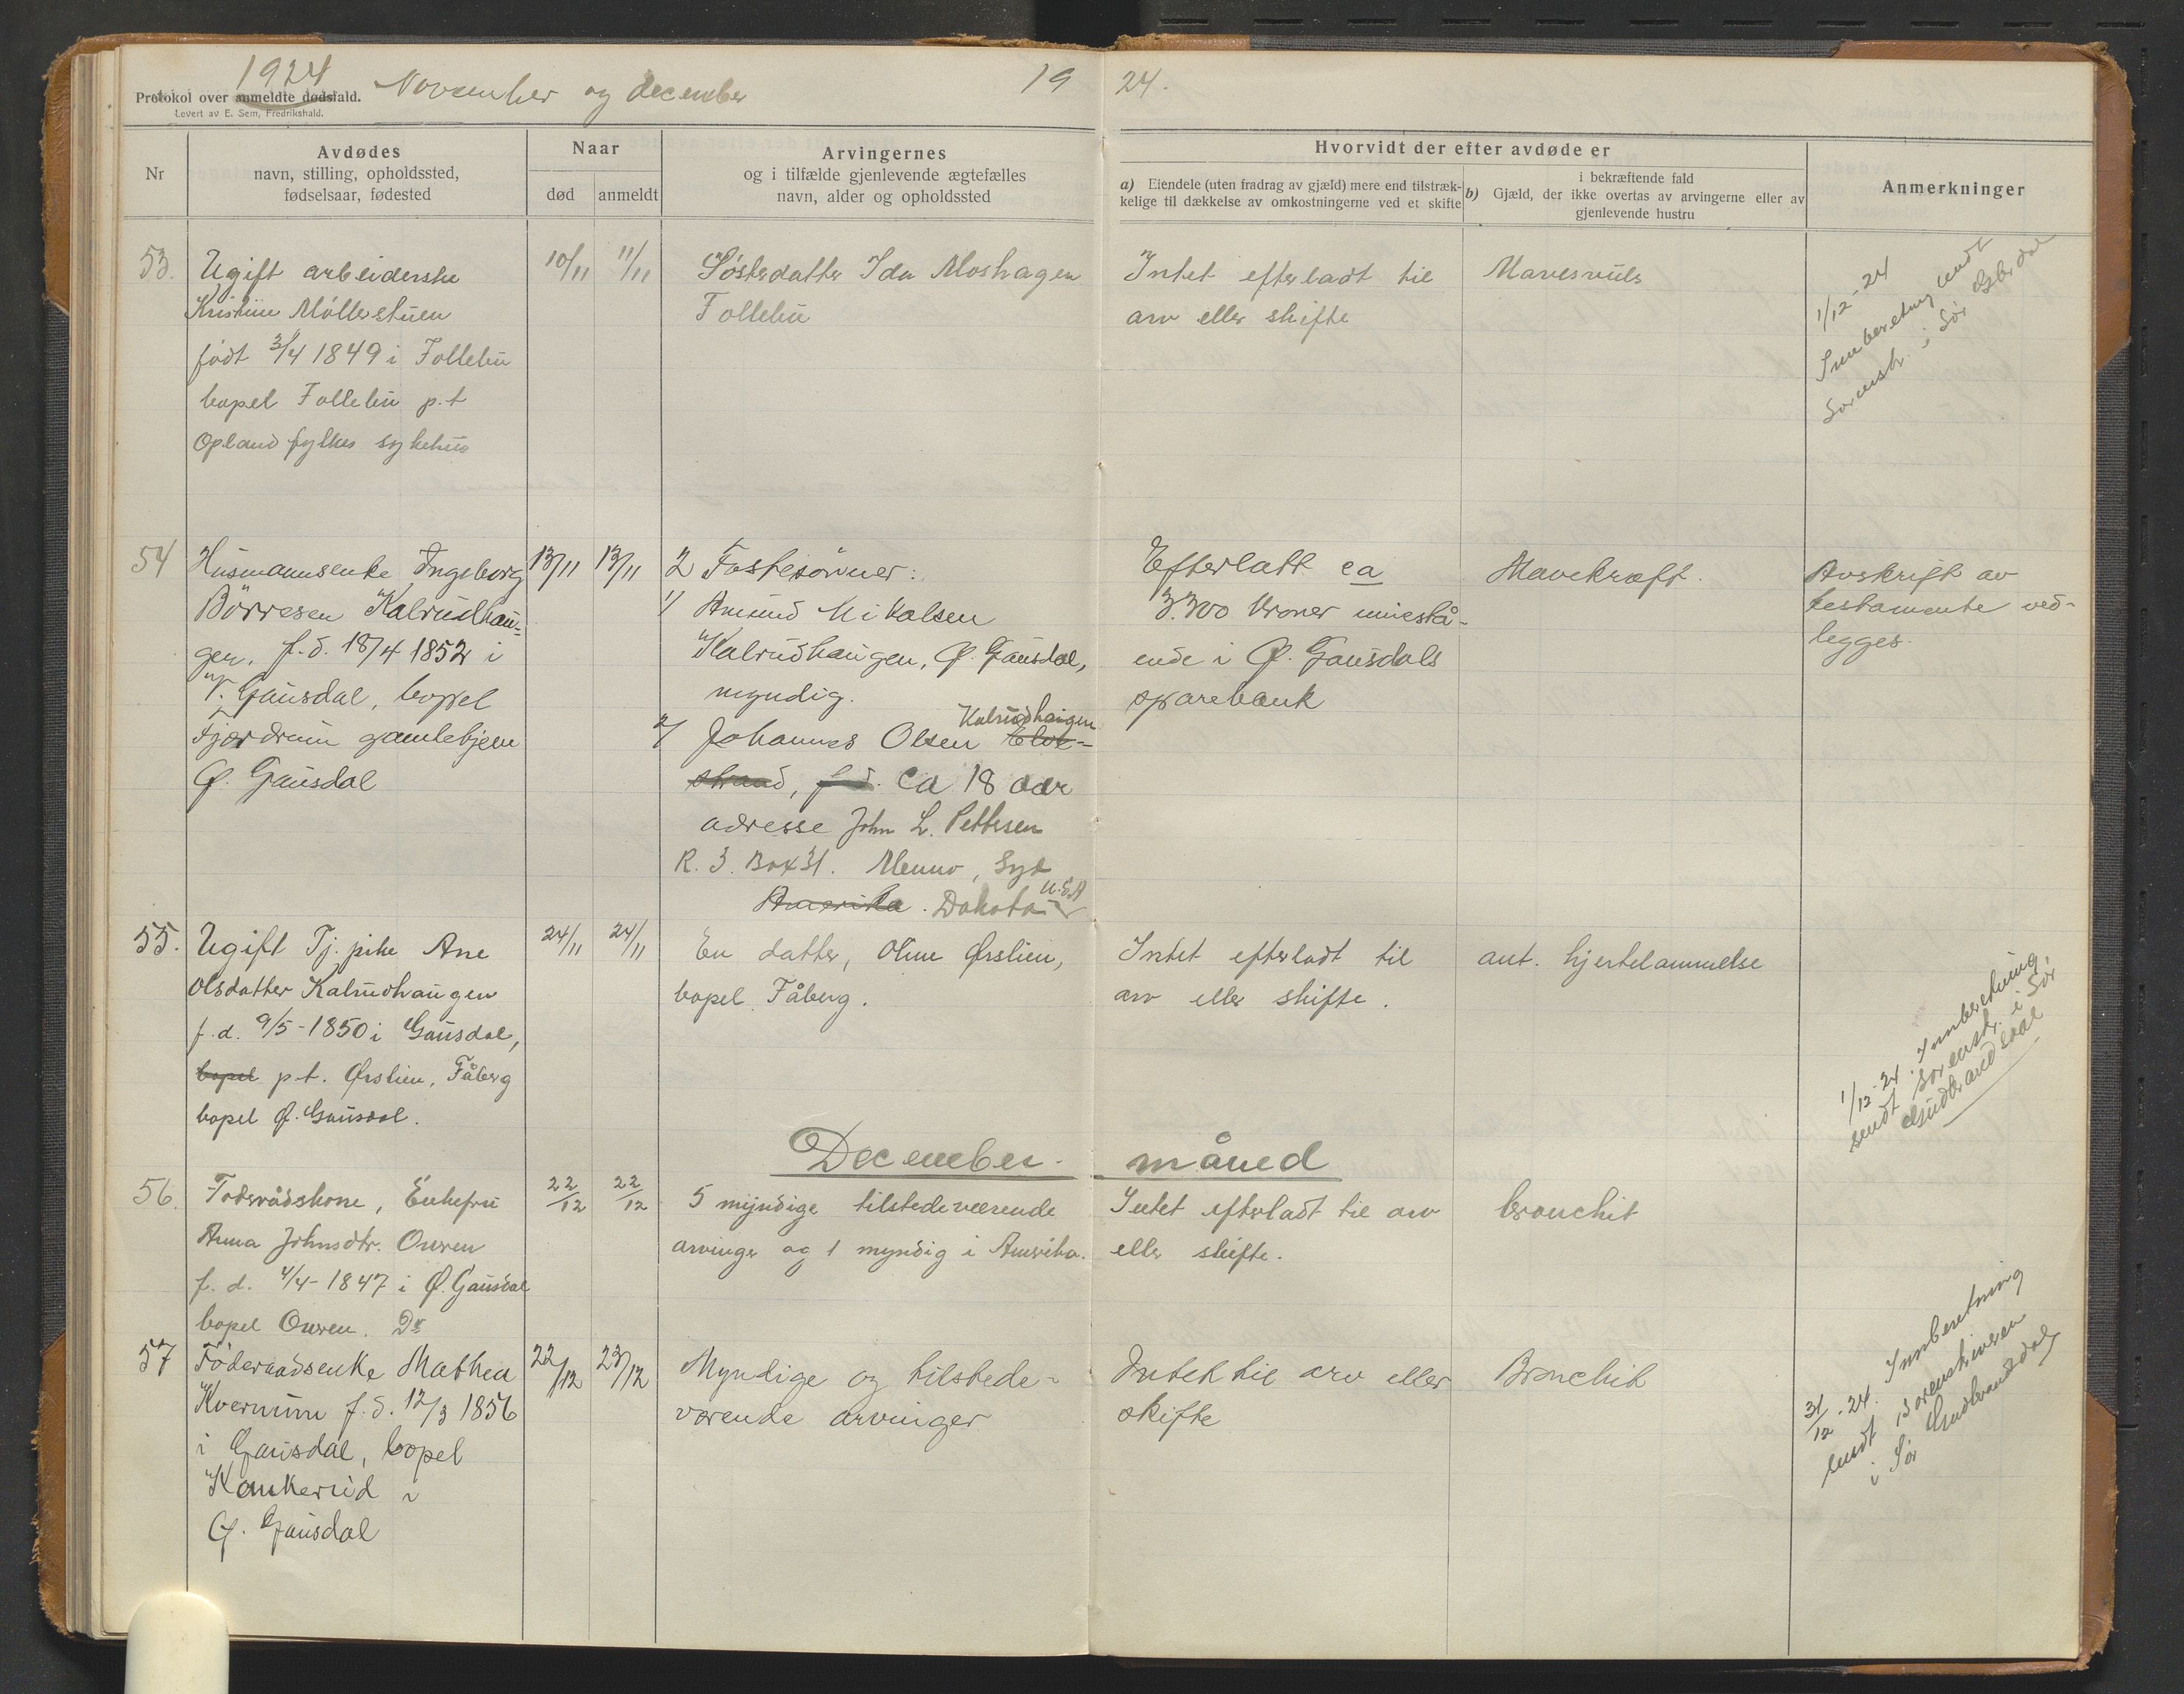 1924
Protokol over anmeldte dødsfald.
Levert av E. Sem, Fredrikshald.
November og december
19 24.
Nr
Avdødes
navn, stilling, opholdssted,
fødselsaar, fødested
Naar
død
anmeldt
Arvingernes
og i tilfælde gjenlevende ægtefælles
navn, alder og opholdssted
Hvorvidt der efter avdøde er
a) Eiendele (uten fradrag av gjæld) mere end tilstræk-
kelige til dækkelse av omkostningerne ved et skifte
i bekræftende fald
b) Gjæld, der ikke overtas av arvingerne eller av
gjenlevende hustru
Anmerkninger
53.
Ugift arbeiderske
Kristine Møllerstuen
født 3/4 1849 i Follebu
bopel Follebu p.t
Opland fylkes sykehus
10/11
11/11
Søsterdatter Ida Moshagen
Follebu
Intet efterladt til
arv eller skifte
Mavesvuls
1/12-24
Innberetning sendt
Sorenskr. i Sør Gbrdal
54
Husmannsenke Ingeborg
Børresen Kalrudhau-
gen, f.d. 18/4 1852 i
V. Gausdal, bopel
Fjærdrum gamlehjem
Ø. Gausdal
13/11
13/11
2 Fostesønner:
1/ Amund Nikolsen
Kalrudhaugen, Ø. Gausdal,
myndig.
Kalrudhaugen
2/ Johannes Olsen Elve-
strand, f.d. Ca 18 aar
adresse John L. Pettersen
R. 3. Box 31. Menno, Syd
Amerika. Dakota U.S.A
Efterlatt ca
3.300 kroner innestå-
ende i Ø. Gausdals
sparebank
Mavekræft.
Avskrift av
testamente ved-
legges.
55.
Ugift Tj. pike Ane
Olsdatter Kalrudhaugen
f.d. 9/5-1850 i Gausdal,
bopel p.t. Ørslien, Fåberg
bopel Ø. Gausdal.
24/11
24/11
En datter, Oline Ørslien,
bopel Fåberg.
Intet efterladt til
arv eller skifte.
ant. hjertelammelse
1/12-24. Innberetning
sendt sorenskr. i Sør
Gudbrandsdal
December måned
56.
Føderådskone, Enkefru
Anna Johnsdtr. Onren
f.d. 4/4-1847 i Ø. Gausdal
bopel Onren. Do
22/12
22/12
5 myndige tilstedeværende
arvinger og 1 myndig i Amerika.
Intet efterladt til arv
eller skifte.
bronchit
57
Føderaadsenke Mathea
Kvernum f.d. 12/3 1856
i Gausdal, bopel
Kankerud i
Ø. Gausdal
22/12
23/12
Myndige og tilstede-
værende arvinger
Intet til arv eller
skifte
Bronchit
31/12-24. Innberetning
sendt sorenskriveren
i Sør Gudbrandsdal